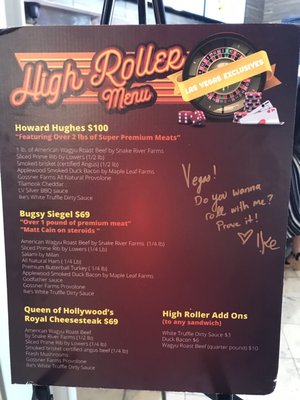 High-Roller
Menu
LAS VEGAS EXCLUSIVES
Howard Hughes $100
"Featuring Over 2 lbs of Super Premium Meats"
1 lb. of American Wagyu Roast Beef by Snake River Farms
Sliced Prime Rib by Lowers (1/2 lb)
Smoked brisket (certified Angus) (1/2 lb)
Applewood Smoked Duck Bacon by Maple Leaf Farms
Gossner Farms All Natural Provolone
Tillamook Cheddar
LV Silver BBQ sauce
Ike's White Truffle Dirty Sauce
Vegas!
Do you wanna
roll with me?
Prove it!
Ike
Bugsy Siegel $69
"Over 1 pound of premium meat"
"Matt Cain on steroids"
American Wagyu Roast Beef by Snake River Farms (1/4 lb)
Sliced Prime Rib by Lowers (1/4 Lb)
Salami by Milan
All Natural Ham (1/4 Lb)
Premium Butterball Turkey (1/4 lb)
Applewood Smoked Duck Bacon by Maple Leaf Farms
Godfather sauce
Gossner Farms Provolone
Ike's White Truffle Dirty Sauce
Queen of Hollywood's
Royal Cheesesteak $69
American Wagyu Roast Beef
by Snake River Farms (1/2 lb)
Sliced Prime Rib by Lowers (1/4 lb)
Smoked brisket certified angus beef (1/4 lb)
Fresh Mushrooms
Gossner Farms Provolone
Ike's White Truffle Dirty Sauce
High Roller Add Ons
(to any sandwich)
White Truffle Dirty Sauce $3
Duck Bacon $6
Wagyu Roast Beef (quarter pound) $10